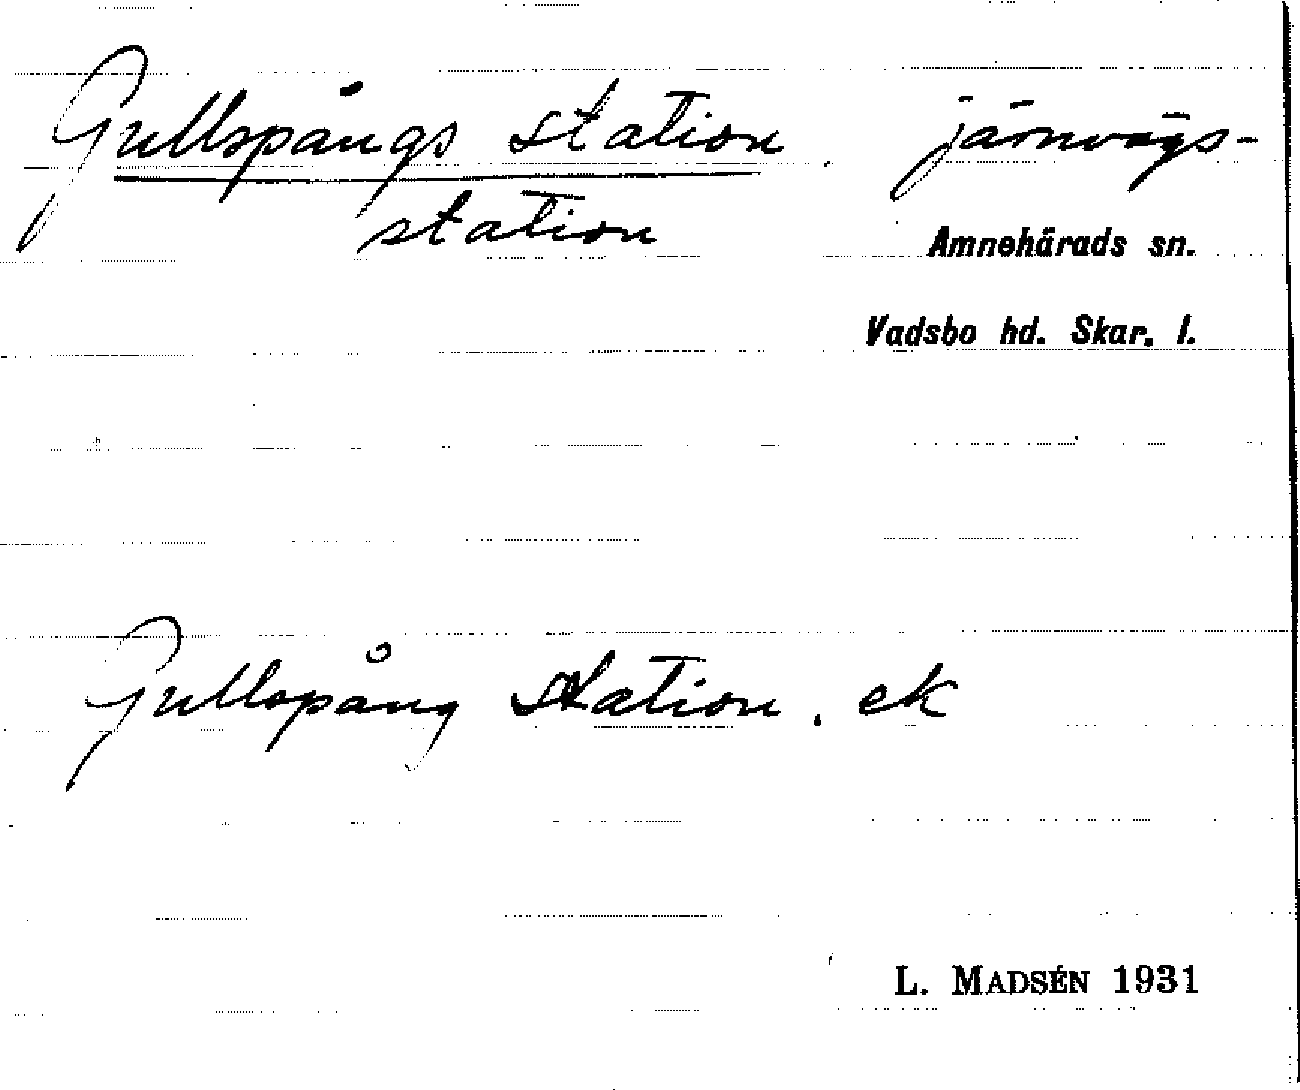 Gullspångs station. järnvägs-
station
Amnehärads sn.
Vadsbo hd. Skar. l.
Gullspång station. ek
L. MADSÉN 1931